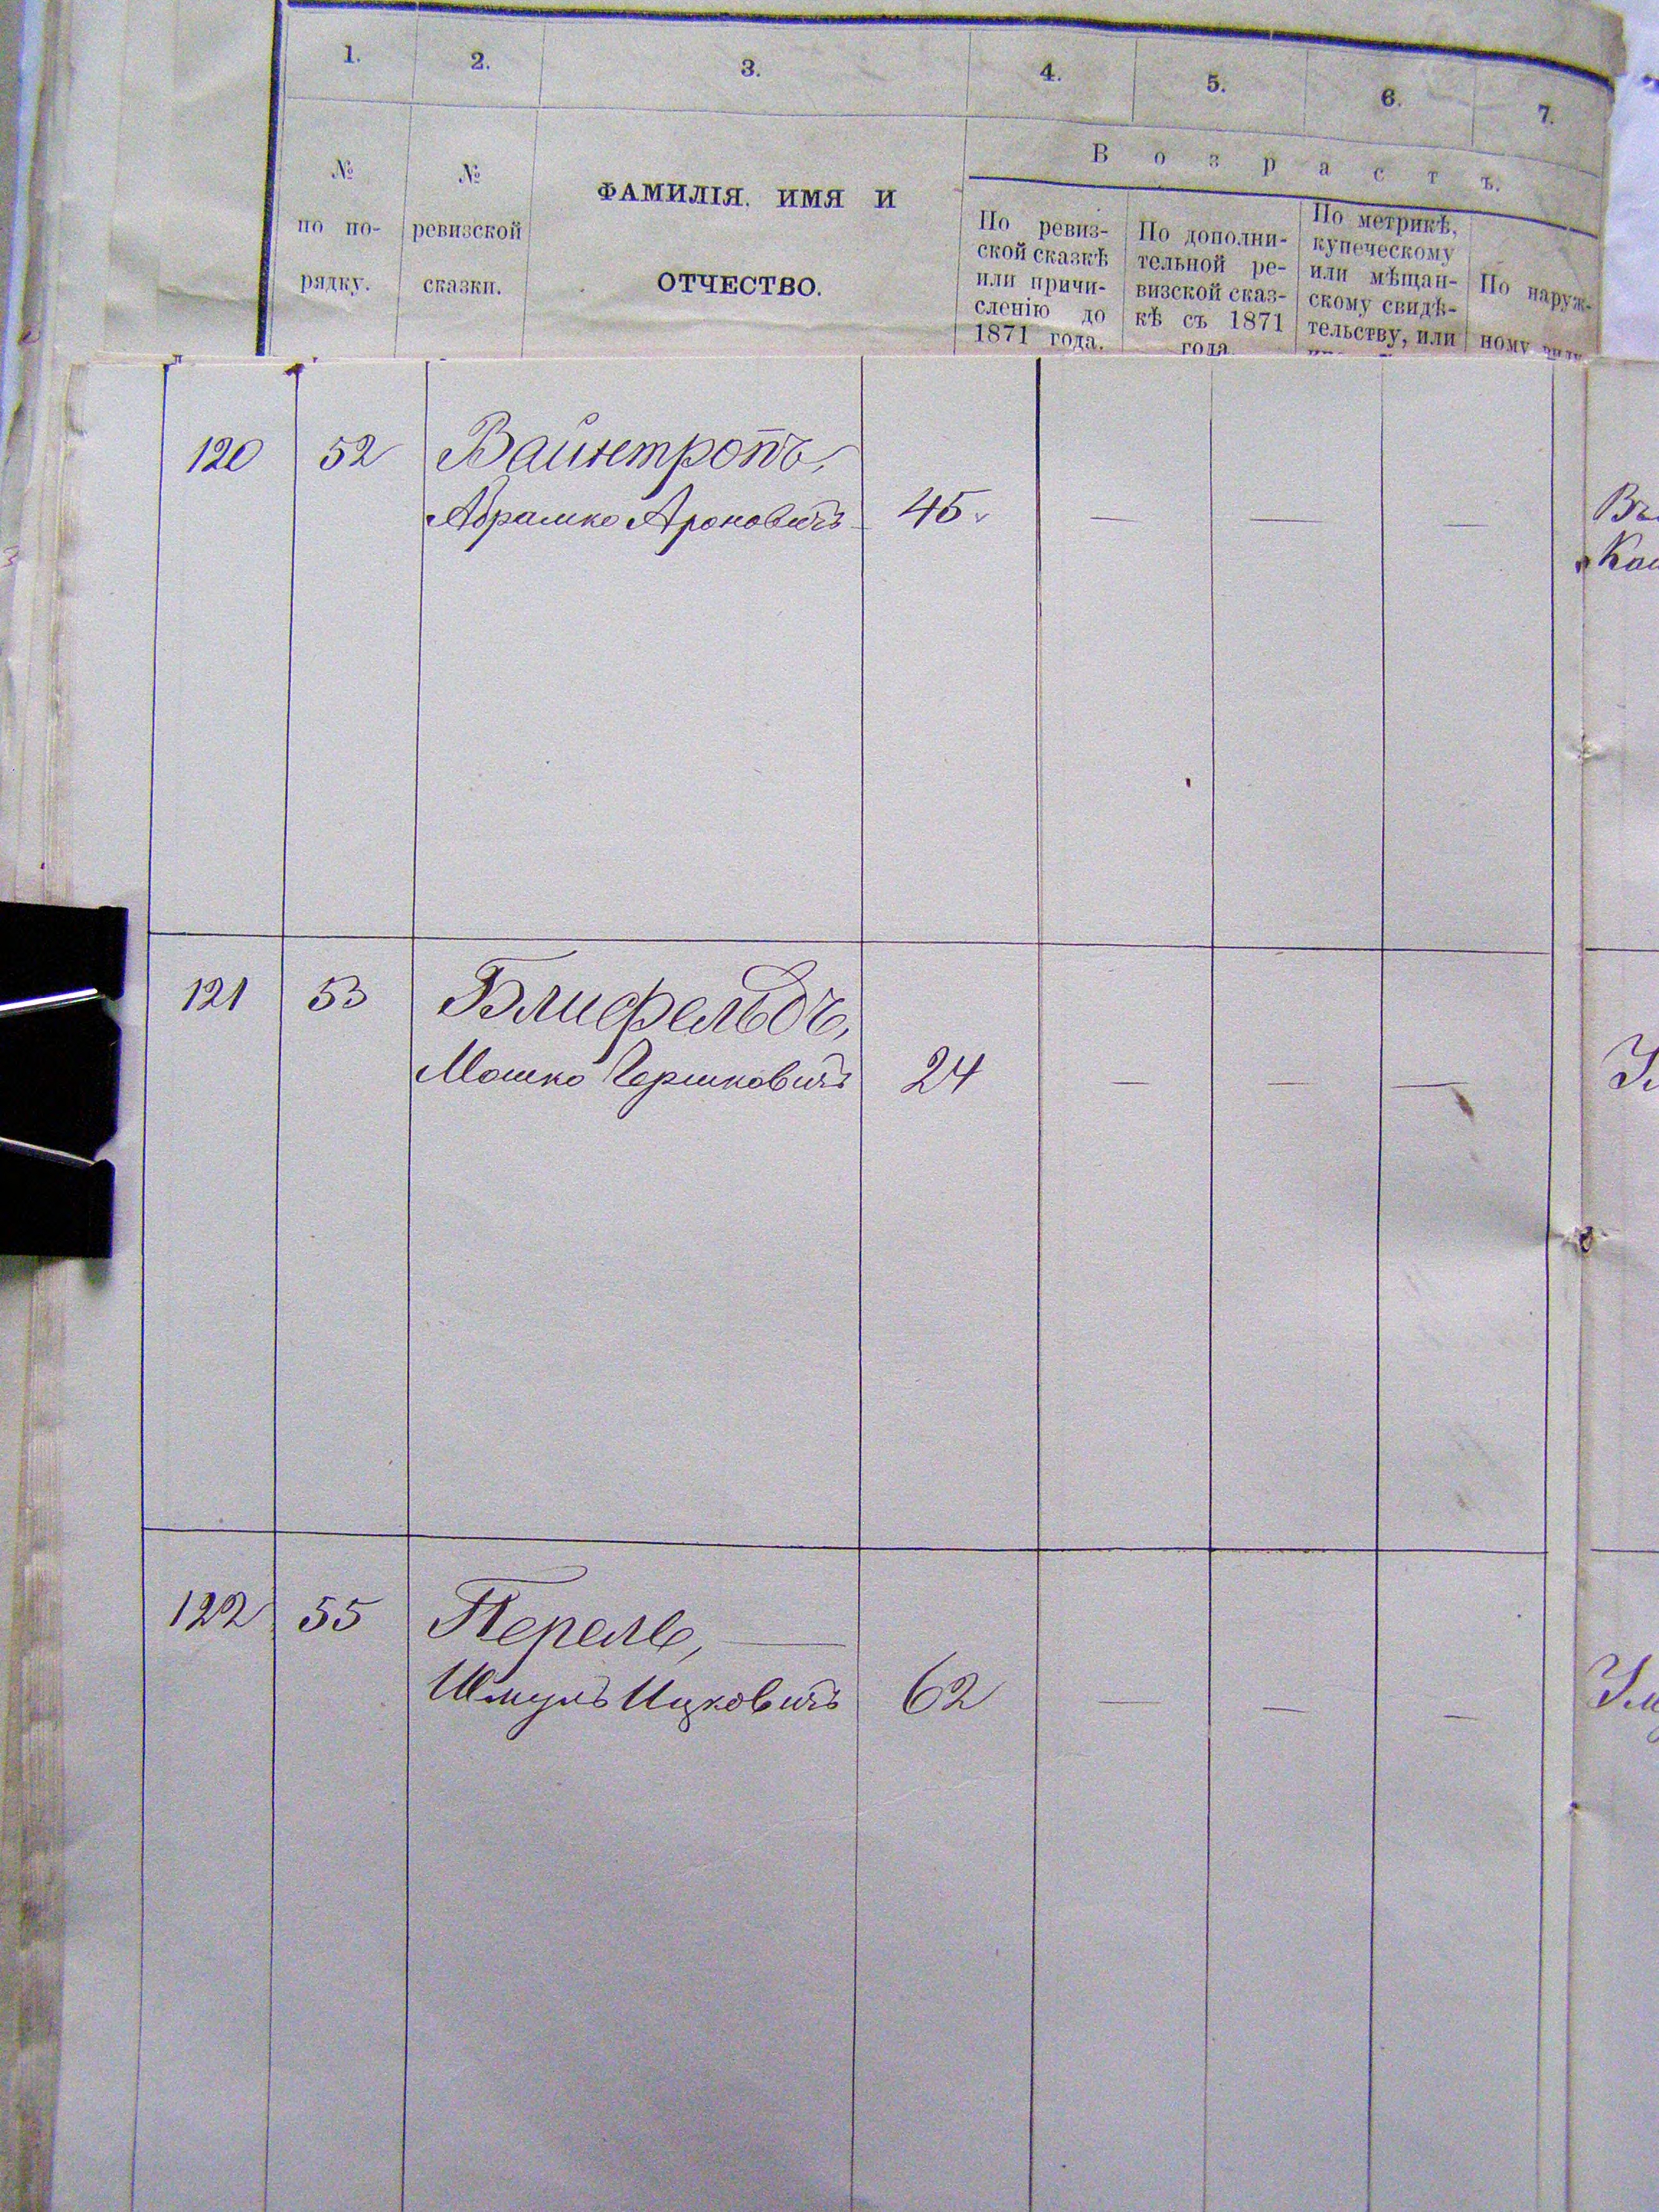 1. 2. 3. 4. 5. 6. 7.
№ по по-рядку.
№ ревизской сказки.
ФАМИЛІЯ, ИМЯ И
ОТЧЕСТВО.
Возрастъ.
По ревиз-
ской сказкѣ
или причи-
сленію до
1871 года.
По дополни-
тельной ре-
визской сказ-
кѣ съ 1871
года.
По метрикѣ,
купеческому
или мѣщан-
скому свидѣ-
тельству, или
По наруж-
ному виду
120 52 Вайнтропъ,
Абрамко Ароновичъ 45
— — —
121 53 Блифельдъ,
Мошко Гершковичъ 24 — — —
122 55 Перель, —
Шмуль Ицковичъ 62 — — —